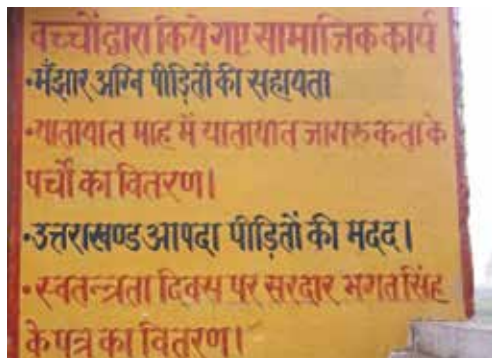 बच्चों द्वारा किये गए सामाजिक कार्य
•मँझार अग्नि पीड़ितों की सहायता
•यातायात माह में यातायात जागरुकता के
पर्चों का वितरण।
•उत्तराखण्ड आपदा पीड़ितों की मदद।
•स्वतन्त्रता दिवस पर सरदार भगत सिंह
के पत्र का वितरण।